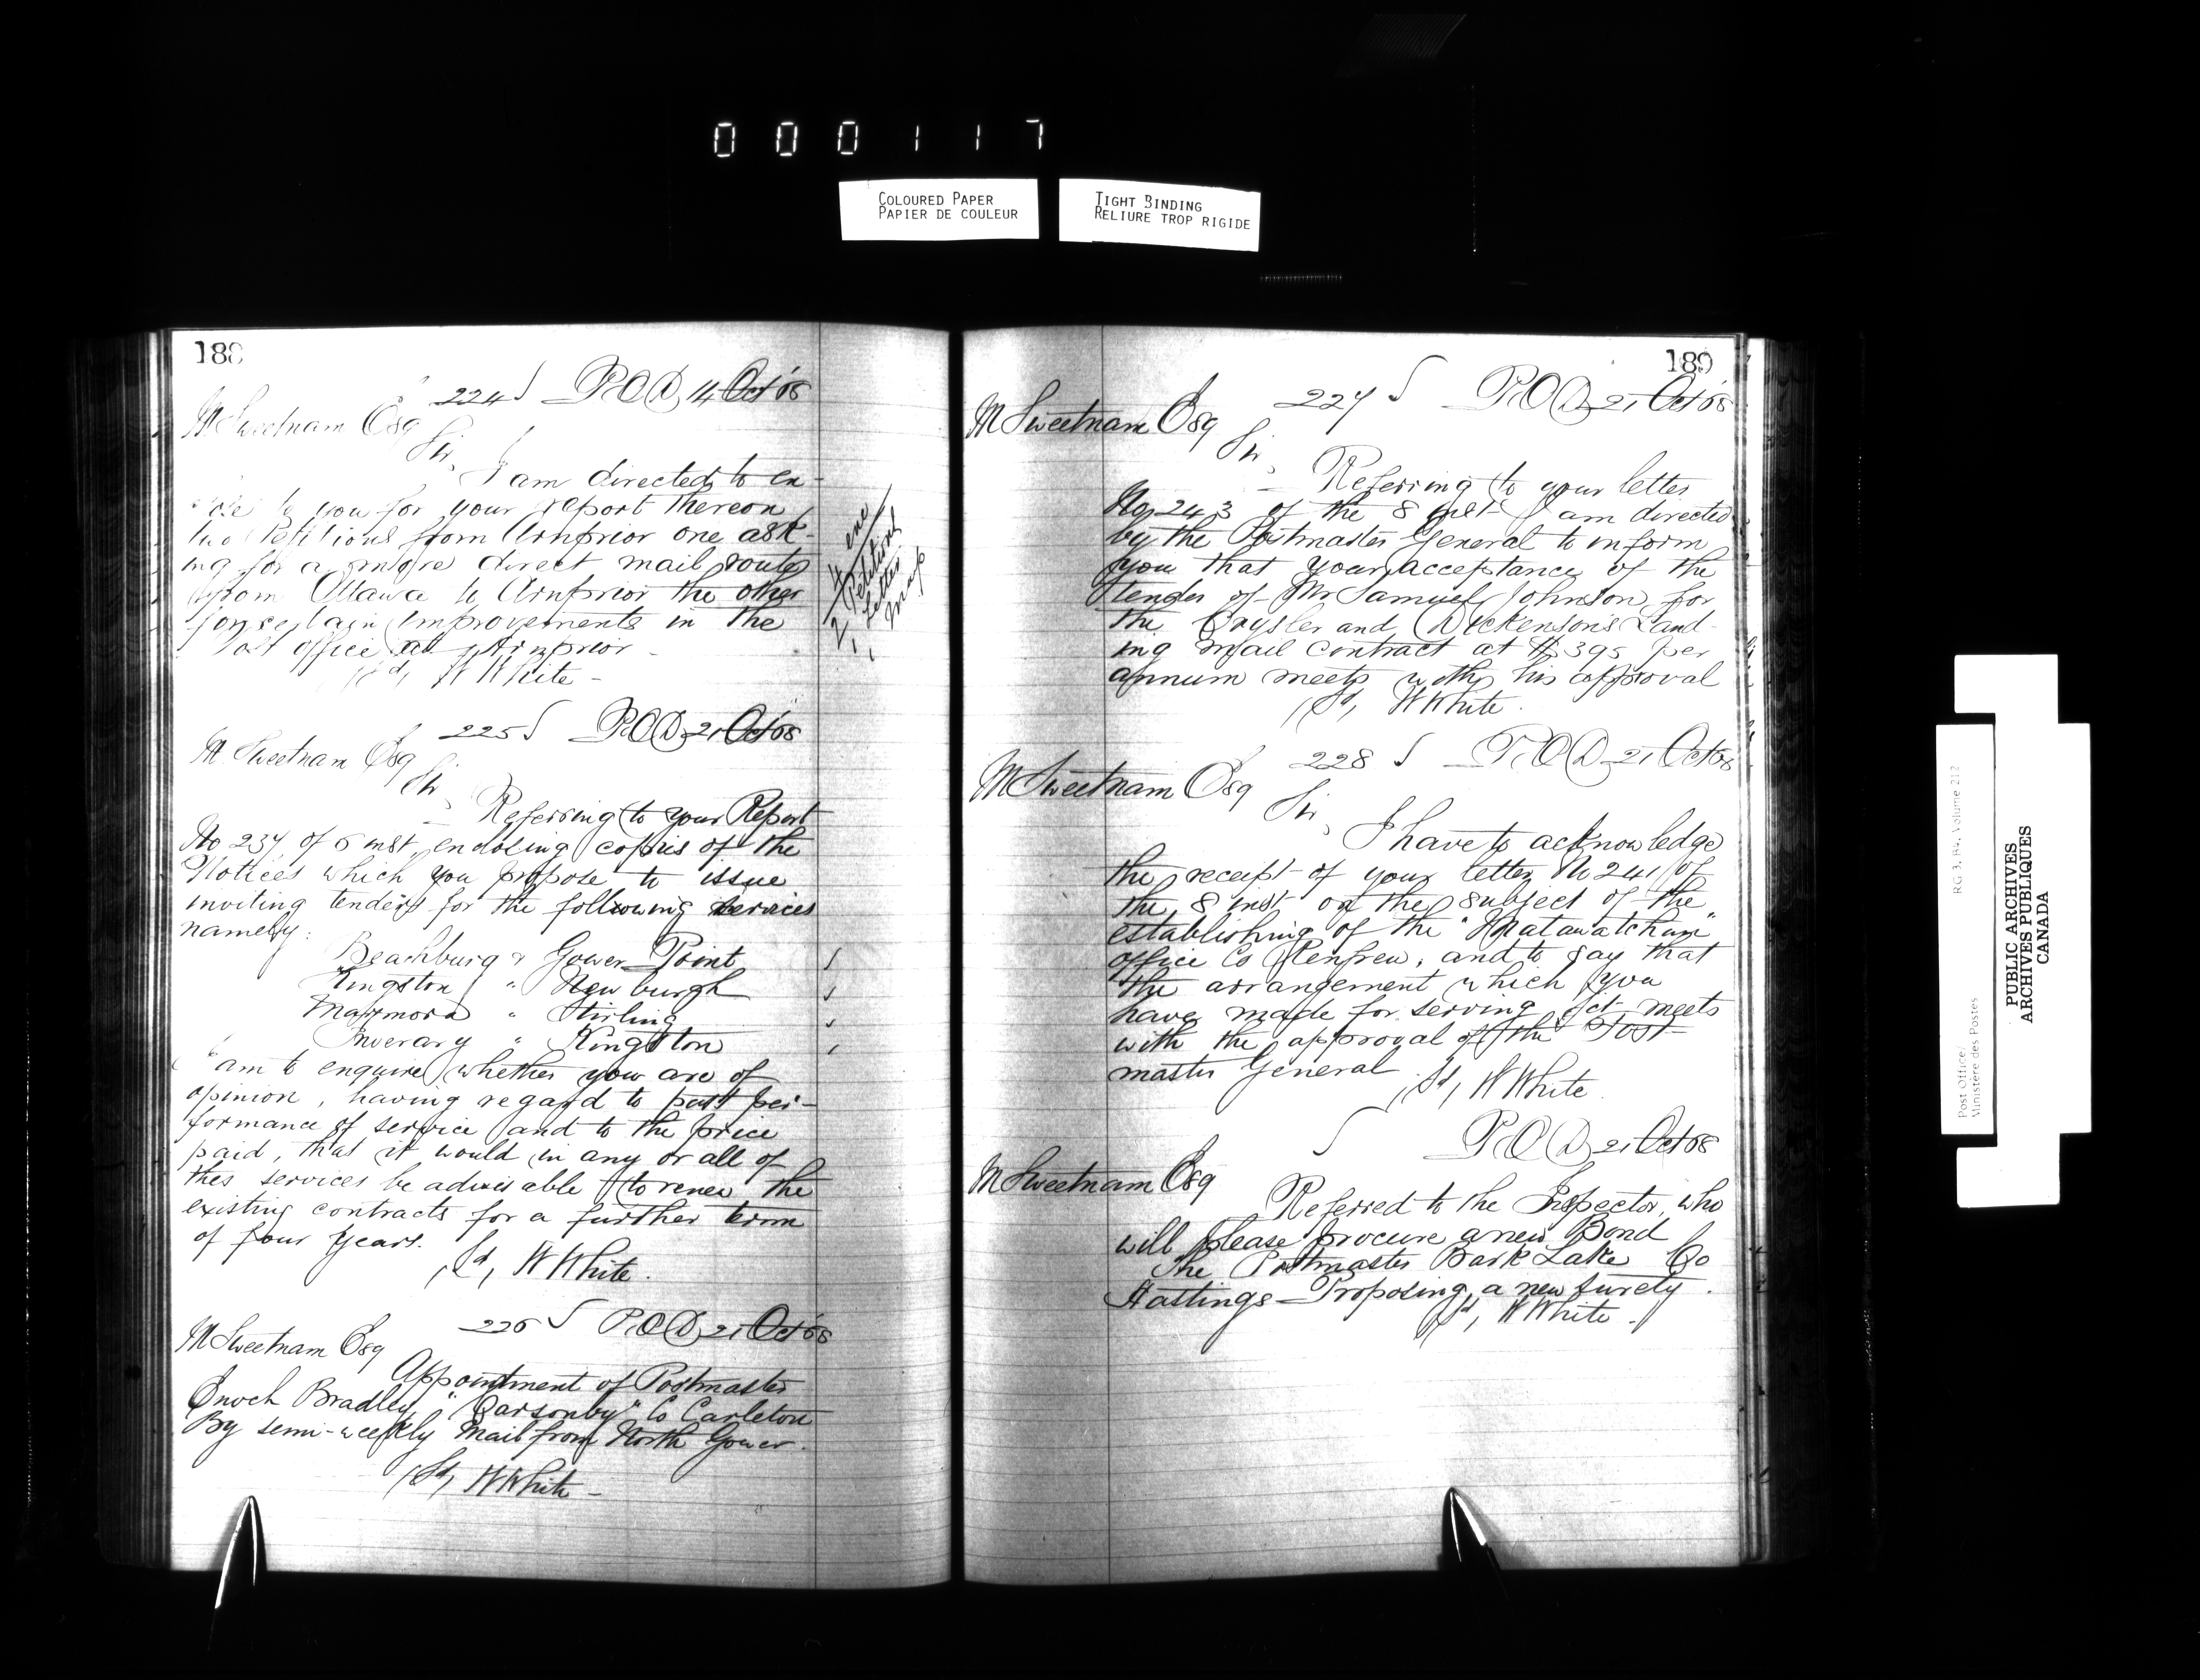 0 0 0 1 1 7
COLOURED PAPER
PAPIER DE COULEUR
TIGHT BINDING
RELIURE TROP RIGIDE
188
224 POD 14 Oct 68
M Sweetnam Esq
Sir,
I am directed to en-
close to you for your report thereon
two Petitions from Arnprior one ask-
ing for a more direct mail route
from Ottawa to Arnprior the other
for certain improvements in the
Post office at Arnprior -
(Sd, W White -
4 enc
2 Petitions
1 Letter
1 Map
225 POD 21 Oct 68
M Sweetnam Esq
Sir,
Referring to your Report
No 237 of 6 inst, enclosing copies of the
Notices which you propose to issue
inviting tenders for the following services
namely:
Beachburg & Gower Point
Kingston " Newburgh
Marmora " Stirling
Inverary " Kingston
I am to enquire whether you are of
opinion, having regard to past per-
formance of service and to the price
paid, that it would in any or all of
thes services be advisable to renew the
existing contracts for a further term
of four years.
(Sd, W White.
226 POD 21 Oct 68
M Sweetnam Esq
Appointment of Postmaster
Enoch Bradley, "Carsonby" Co Carleton
By semi-weekly Mail from North Gower.
(Sd, W White -
189
227 POD 21 Oct 68
M Sweetnam Esq
Sir,
Referring to your letter
No 243 of the 8 inst I am directed
by the Postmaster General to inform
you that your acceptance of the
tender of Mr Samuel Johnson for
the Crysler and Dickenson's Land-
ing mail contract at $395 per
annum meets with his approval
(Sd, W White.
228 POD 21 Oct 68
M Sweetnam Esq
Sir,
I have to acknowledge
the receipt of your letter No 241 of
the 8 inst on the subject of the
establishing of the "Matawatchan"
office Co Renfrew, and to say that
the arrangement which you
have made for serving it meets
with the approval of the Post-
master General
(Sd, W White.
POD 21 Oct 68
M Sweetnam Esq
Referred to the Inspector, who
will please procure a new Bond
The Postmaster Bark Lake Co
Hastings - Proposing a new surety.
(Sd, W White.
Post Office/
Ministère des Postes
RG 3, B4, Volume 212
PUBLIC ARCHIVES
ARCHIVES PUBLIQUES
CANADA